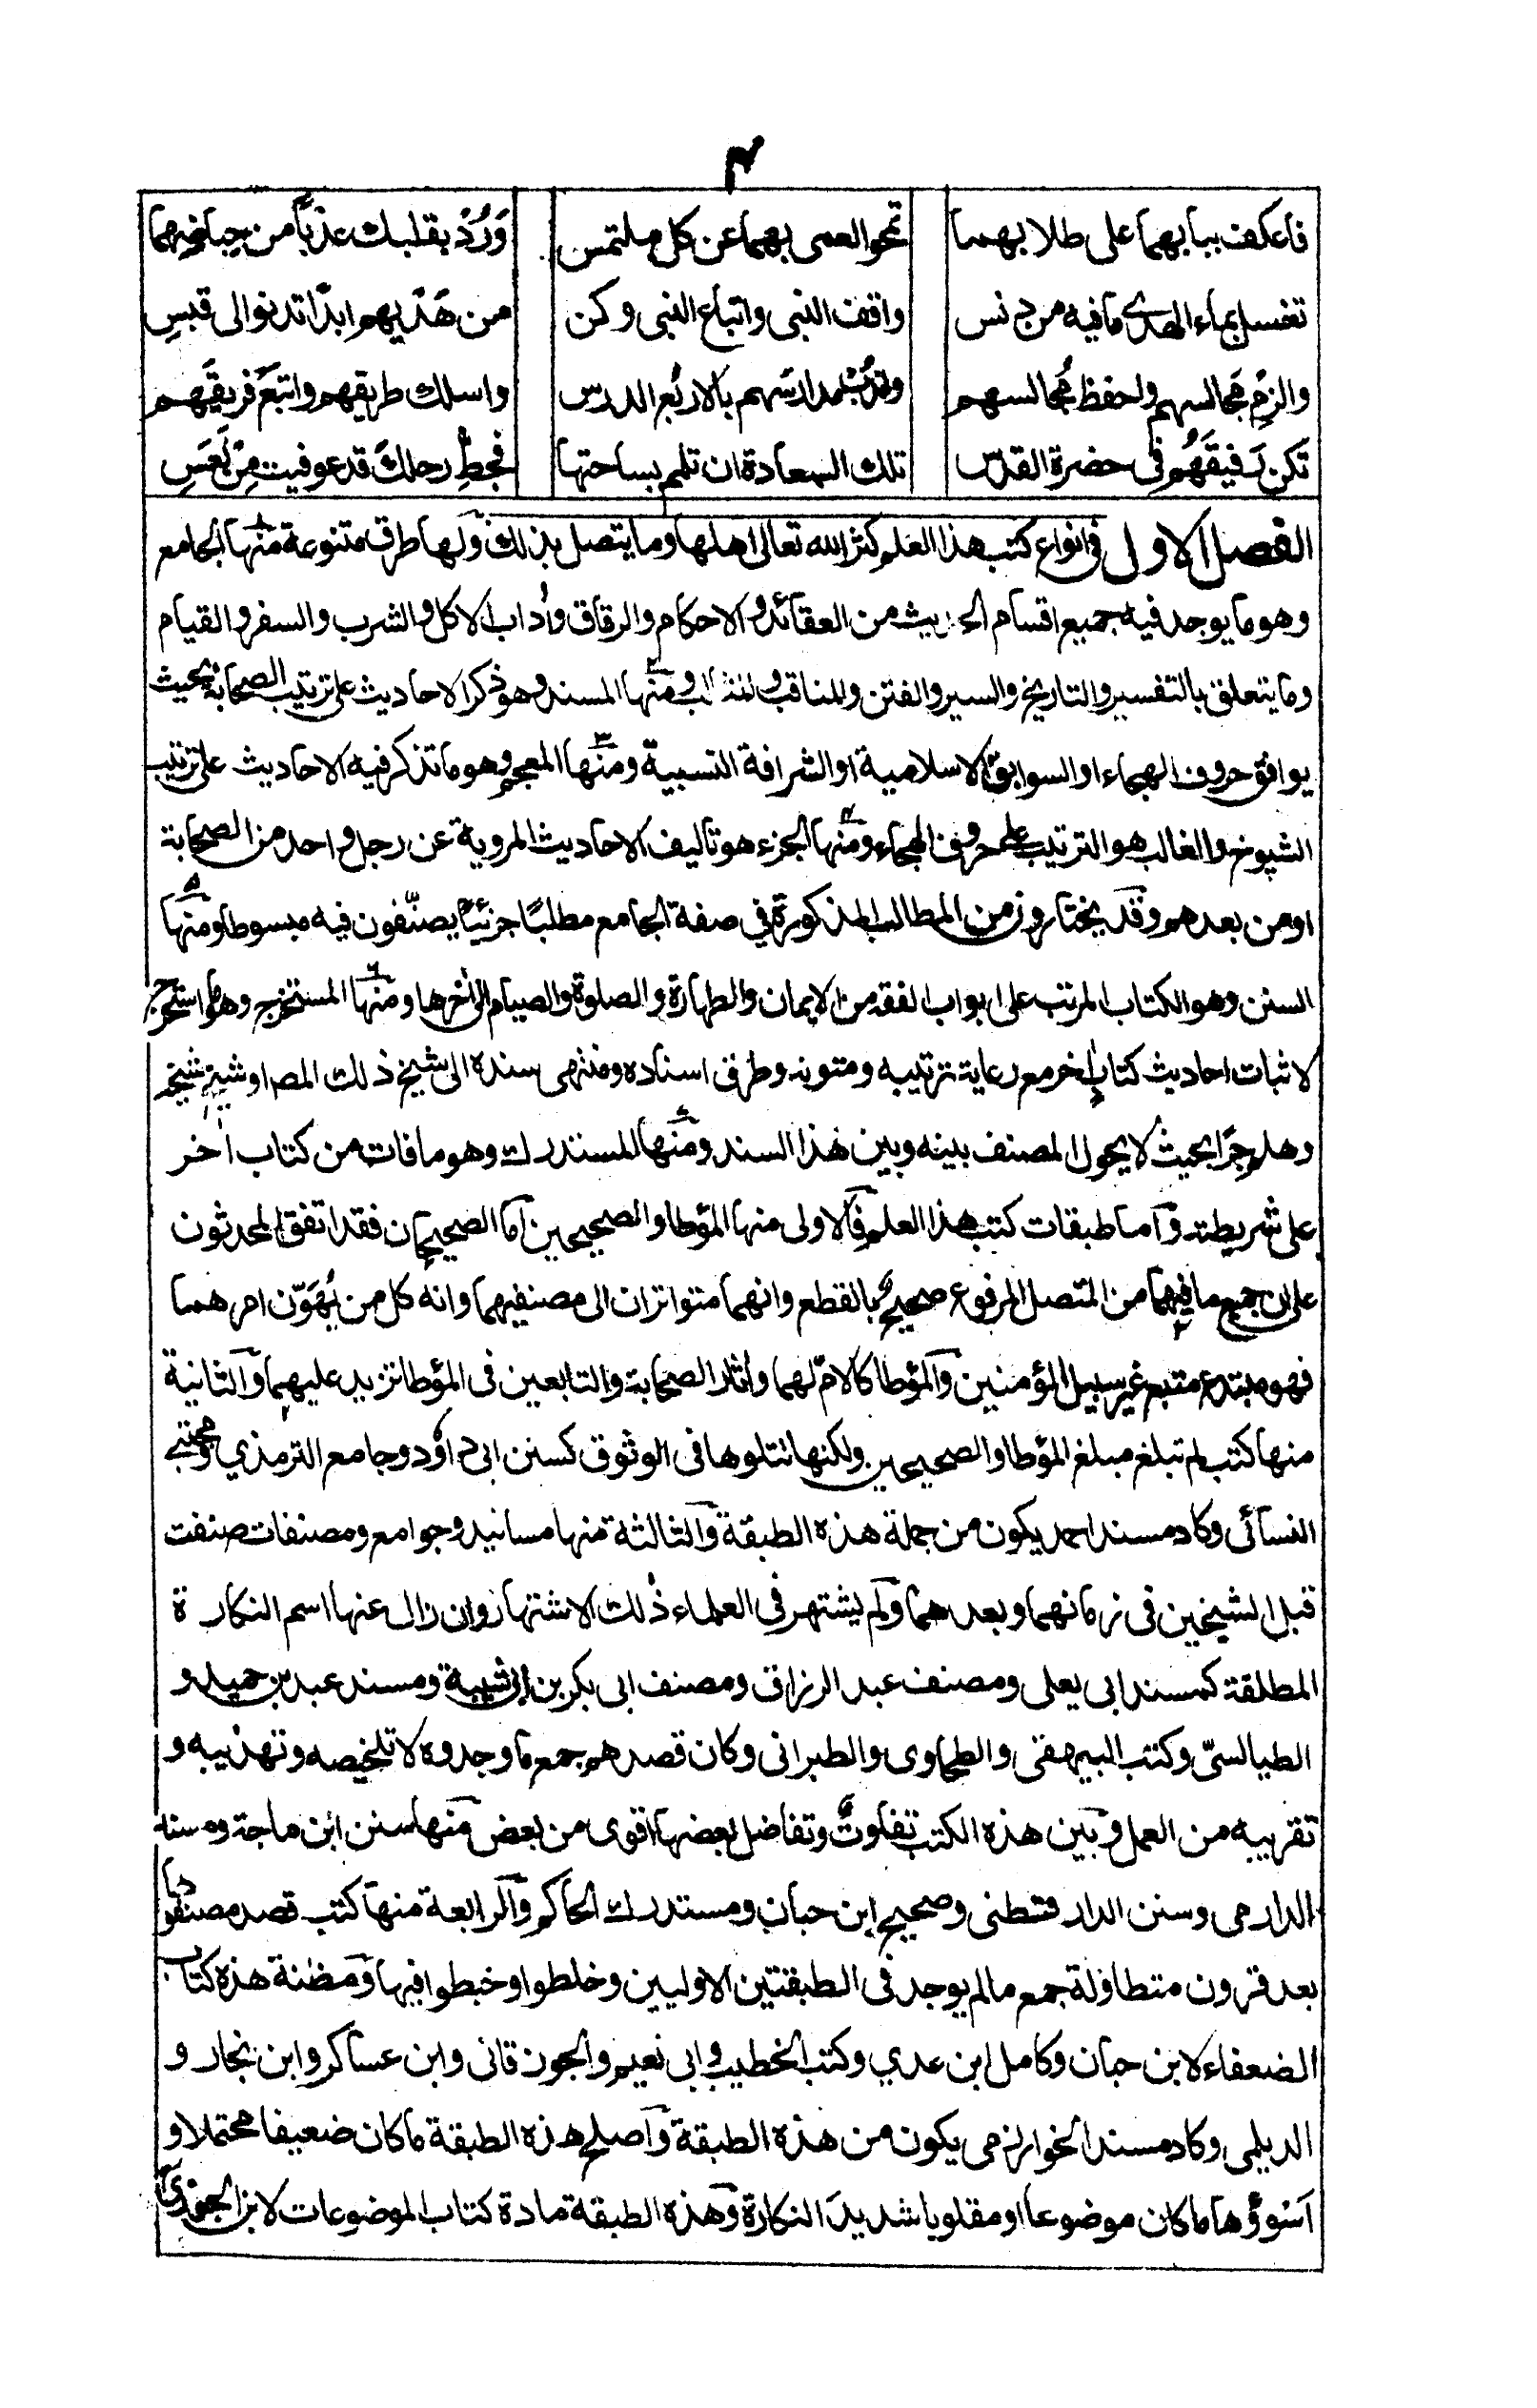 ٣
فاعكف ببابهما على طلابهما تمحو العمى بهما عن كل ملتمس وَرُدْ بقلبك عذبًا من حياضهما
تغسل بماء الهدى ما فيه من دنس واقف النبي واتباع النبي وكن من هَدْيهم ابدًا تدنو الى قبسِ
والزم مجالسهم واحفظ مُجالسهم واندُبْ مدارسهم بالاربُع الدرس واسلك طريقهم واتبَع فريقَهم
تكن رفيقَهُم في حضرة القدس تلك السعادة ان تلمم بساحتها فحُطّ رحلكَ قد عوفيت مِنْ تَعَسِ
الفصل الاول في انواع كتب هذا العلم كثر الله تعالى اهلها وما يتصل بذلك ولها طرق متنوعة منها الجامع
وهو ما يوجد فيه جميع اقسام الحديث من العقائد و الاحكام والرقاق وأداب الاكل والشرب والسفر والقيام
وما يتعلق بالتفسير والتاريخ والسير والفتن والمناقب والمثالب ومنها المسند وهو ذكر الاحاديث على ترتيب الصحابة بحيث
يوافق حروف الهجاء او السوابق الاسلامية او الشرافة النسبية ومنها المعجم وهو ما تذكر فيه الاحاديث على ترتيب
الشيوخ والغالب هو الترتيب على حروف الهجاء ومنها الجزء هو تاليف الاحاديث المروية عن رجل واحد من الصحابة
او من بعدهم وقد يختارون من المطالب المذكورة في صفة الجامع مطلبًا جزئيًا يصنّفون فيه مبسوطا ومنها
السنن وهو الكتاب المرتب على ابواب الفقه من الايمان والطهارة والصلوة والصيام الى أخرها ومنها المستخرج وهو ما استخرج
لاثبات احاديث كتابٍ أخر مع رعاية ترتيبه ومتونه وطرق اسناده ومنتهى سنده الى شيخ ذلك المصـ او شيخ شيخه
وهلم جرًا بحيث لا يحول المصنف بينه وبين هذا السند ومنها المستدرك وهو ما فات من كتاب أخر
على شريطته وآما طبقات كتب هذا العلم فالاولى منها المؤطا والصحيحين آما الصحيحان فقد اتفق المحدثون
على ان جميع ما فيهما من المتصل المرفوع صحيحٌ بالقطع وانهما متواتران الى مصنفيهما وانه كل من يُهَوّن امرهما
فهو مبتدع متبع غير سبيل المؤمنين والمؤطا كالامّ لهما وأثار الصحابة والتابعين في المؤطا تزيد عليهما والثانية
منها كتب لم تبلغ مبلغ المؤطا والصحيحين ولكنها تتلوها في الوثوق كسنن ابي داؤد وجامع الترمذي ومجتبى
النسآئى وكاد مسند احمد يكون من جملة هذه الطبقة والثالثة منها مسانيد وجوامع ومصنفات صنفت
قبل الشيخين في زمانهما وبعدهما ولم يشتهر في العلماء ذلك الاشتهار وان زال عنها اسم النكارة
المطلقة كمسند ابي يعلى ومصنف عبد الرزاق ومصنف ابى بكر بن ابى شيبة ومسند عبد بن حميد و
الطيالسيّ وكتب البيهقى والطحاوى والطبرانى وكان قصدهم جمع ما وجدوه لا تلخيصه وتهذيبه و
تقريبه من العمل وبين هذه الكتب تفاوتٌ وتفاضل بعضها اقوى من بعض منها سنن ابن ماجة ومسند
الدارمى وسنن الدارقطنى وصحيح ابن حبان ومستدرك الحاكم والرابعة منها كتب قصد مصنفوها
بعد قرون متطاولة جمع ما لم يوجد فى الطبقتين الاوليين وخلطوا وخبطوا فيها ومظنة هذه كتاب
الضعفاء لابن حبان وكامل ابن عدي وكتب الخطيب وابى نعيم والجوزقانى وابن عساكر وابن نجار و
الديلمى وكاد مسند الخوارزمى يكون من هذه الطبقة وآصلح هذه الطبقة ما كان ضعيفا محتملا و
اَسْوؤها ما كان موضوعا او مقلوبا شديد النكارة وهذه الطبقة مادة كتاب الموضوعات لابن الجوزى